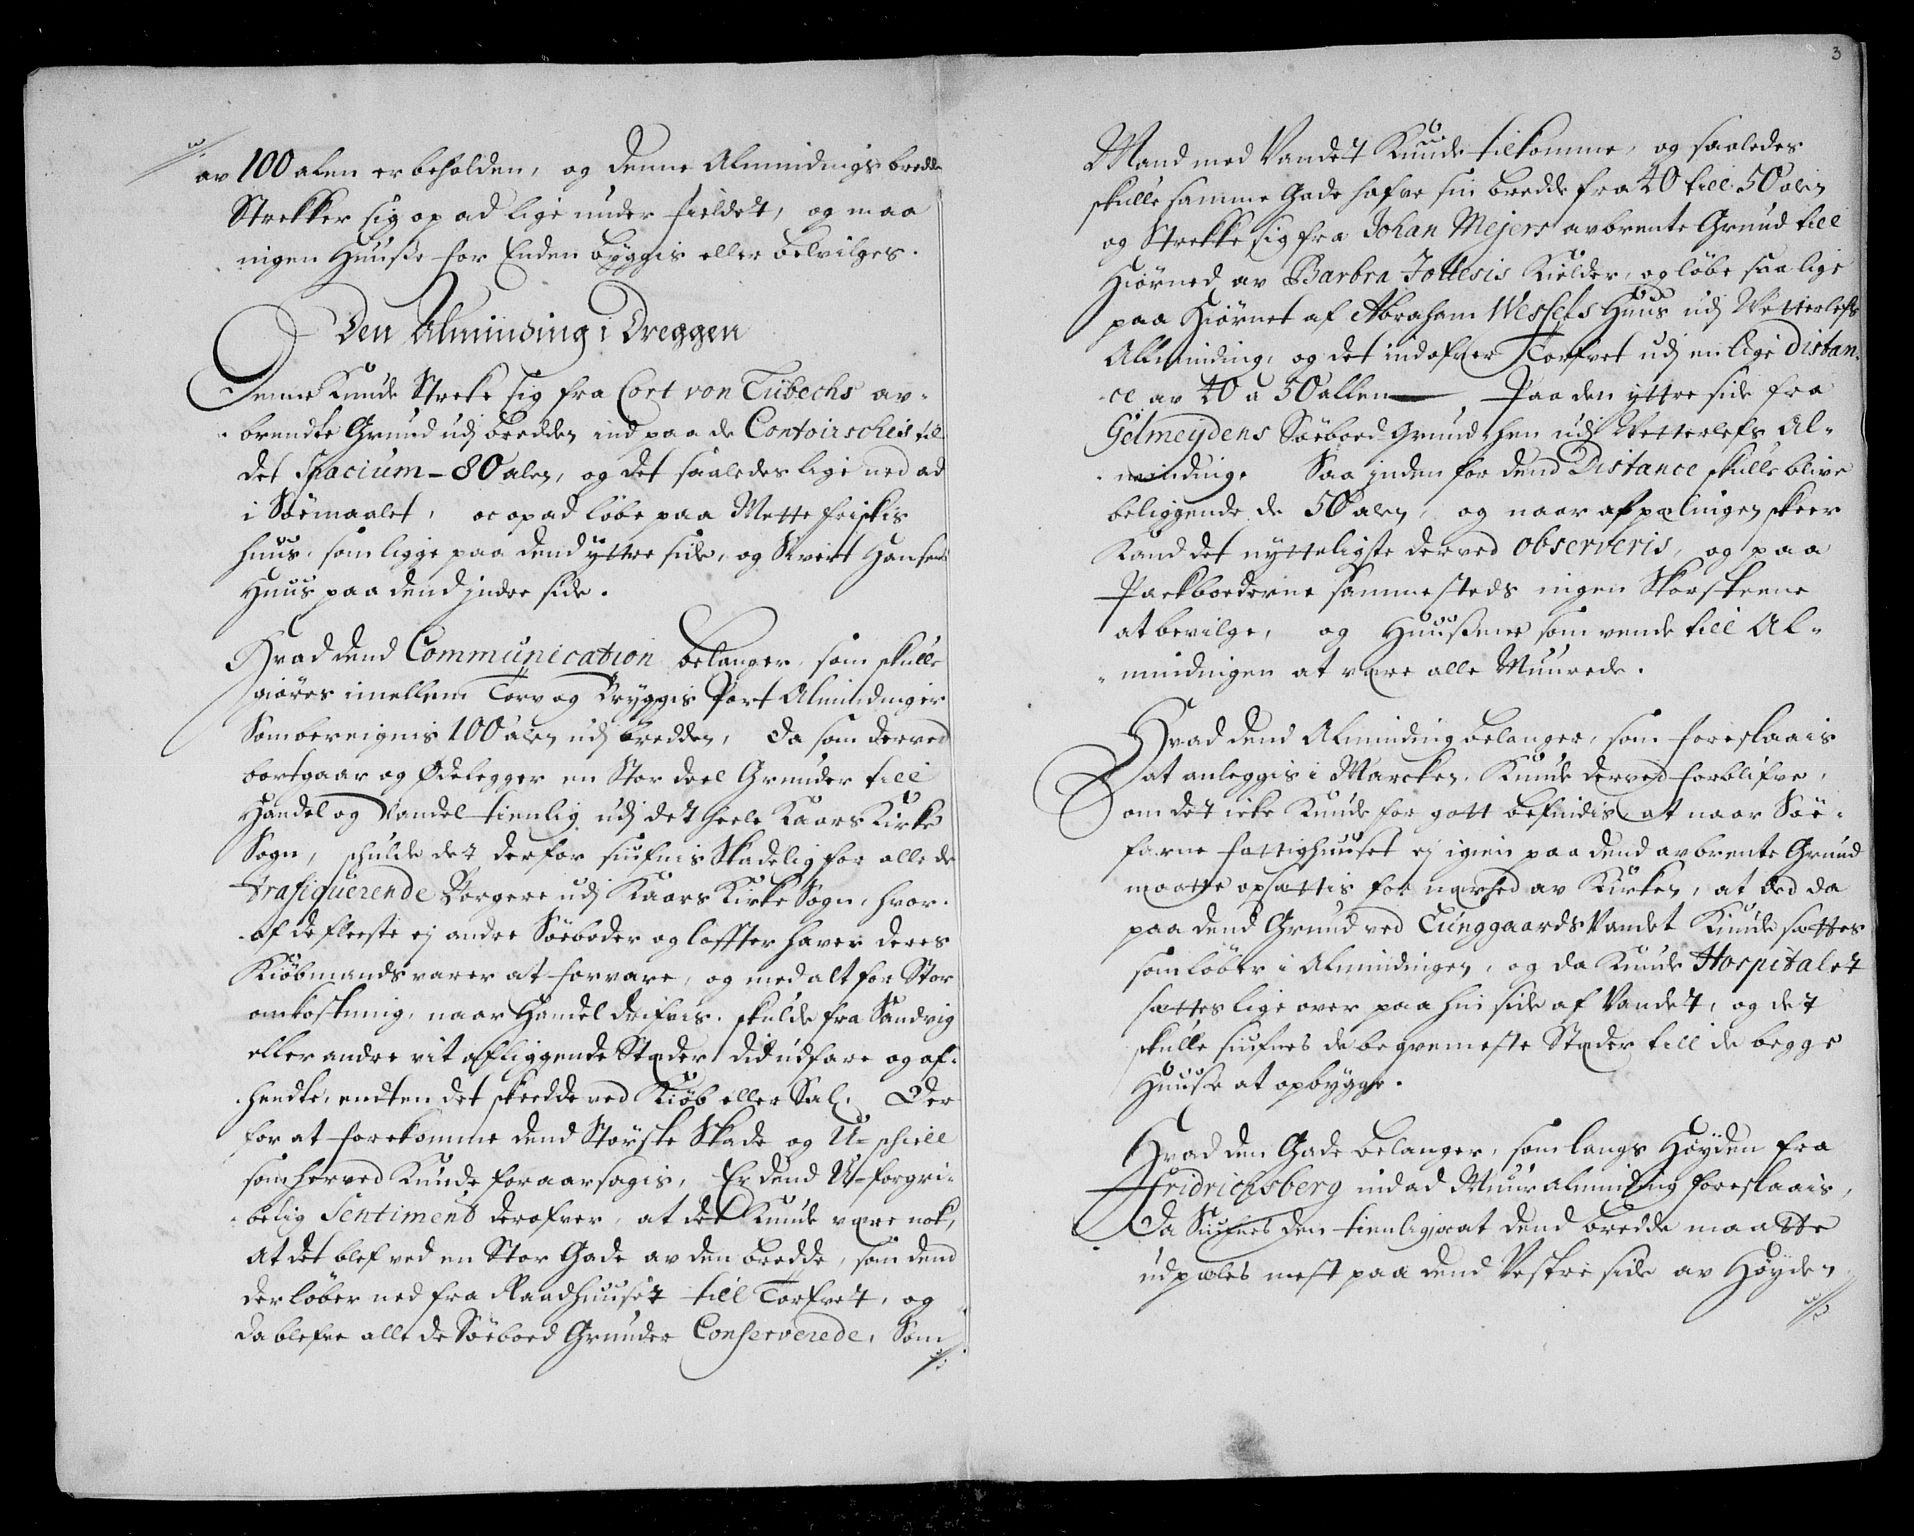 av 100 alen er beholden, og denne Almindings bredde
Strekker sig op ad lige under fieldet, og maa
ingen Huuse for Enden byggis eller bevilges.
Den Alminding i Dreggen
Denne kunde Streke sig fra Cort von Lübechs av-
brendte Grund udj bredden ind paa de Contoirscheis til
det Spacium - 80 alen, og det saaledes lige ned ad
i Söemaalet, oc op ad löbe paa Mette friskis
huus, som ligge paa dend yttre side, og Sivert Hansens
Huus paa dend jndre side.
Hvad dend Communication belanger, som skulle
giöres imellem Torv og Bryggis Port Alminding er
Som beregnis 100 alen udj bredden, da som derved
bortgaar og Ödelegger en Stor deel Grunder till
Handel og Vandel tienlig udj det heele Kaars Kirke
Sogn, schulde det derfor siufnis Skadelig for alle de
trafiquerende Borgere udj Kaars Kirke Sogn, hvor-
af de fleeste ej andre Söeboder og loffter haver deres
Kiöbmands varer at forvare, og med alt for Stor
omkostning, naar Handel drifvis, skulde fra Sandvig
eller andre vit afliggende Stæder did udfare og af-
hendte, endten det skeedde ved Kiöb eller Sal. Der
for at forekomme dend Störste Skade og U-schiell
som herved kunde foraarsagis, Er dend U-forgri-
belig Sentiment derofver, at det kunde være nok,
at det blef ved en Stor Gade av den bredde, som dend
der löber ned fra Raadhuuset till Torfvet, og
da blefve alle de Söeboed Grunder Conserverede, Som
3
Mand med Vandet kunde tilkomme, og saaledes
skulle samme Gade hafve sin bredde fra 40 till 50 alen
og Strekke sig fra Johan Mejers avbrente Grund till
Hiörned av Barbra Kielder, og löbe saa lige
paa Hiörnet af Abraham Wessels Huus udj Vetterlefs
Allminding, og det indofver Torfvet udj en lige distan-
ce av 40 a 50 allen — Paa den yttre side fra
Gelmeydens Söeboed Grund hen udj Vetterlefs Al-
minding. Saa jnden for dend Distance skulle blive
beliggende de 50 alen, og naar afpælingen skeer
Kand det nytteligste derved observeris, og paa
Packboederne sammesteds ingen Skorsteene
at bevilge, og Huusene som vende till Al-
mindingen at være alle Muurede.
Hvad dend Alminding belanger, som foreslaais
at anleggis i Marcken, kunde derved forblifve,
om det icke kunde for gott befindis, at naar Söe-
farne fattighuuset ej igien paa dend avbrente Grund
maatte opsættis for nærhed av Kirken, at ded da
paa dend Grund ved Lunggaards Vandet kunde sættes
som löber i Almindingen, og da kunde Hospitalet
sættes lige over paa hin side af Vandet, og det
skulle siufnes de beqvemeste Stæder till de begge
Huuse at opbygge.
Hvad den Gade belanger, som langs Höyden fra
Fridrichsberg ind ad Muur alminding foreslaais,
da Siufnes den tienlig, at dend bredde maatte
udpæles mest paa dend Vestre side av Höyden